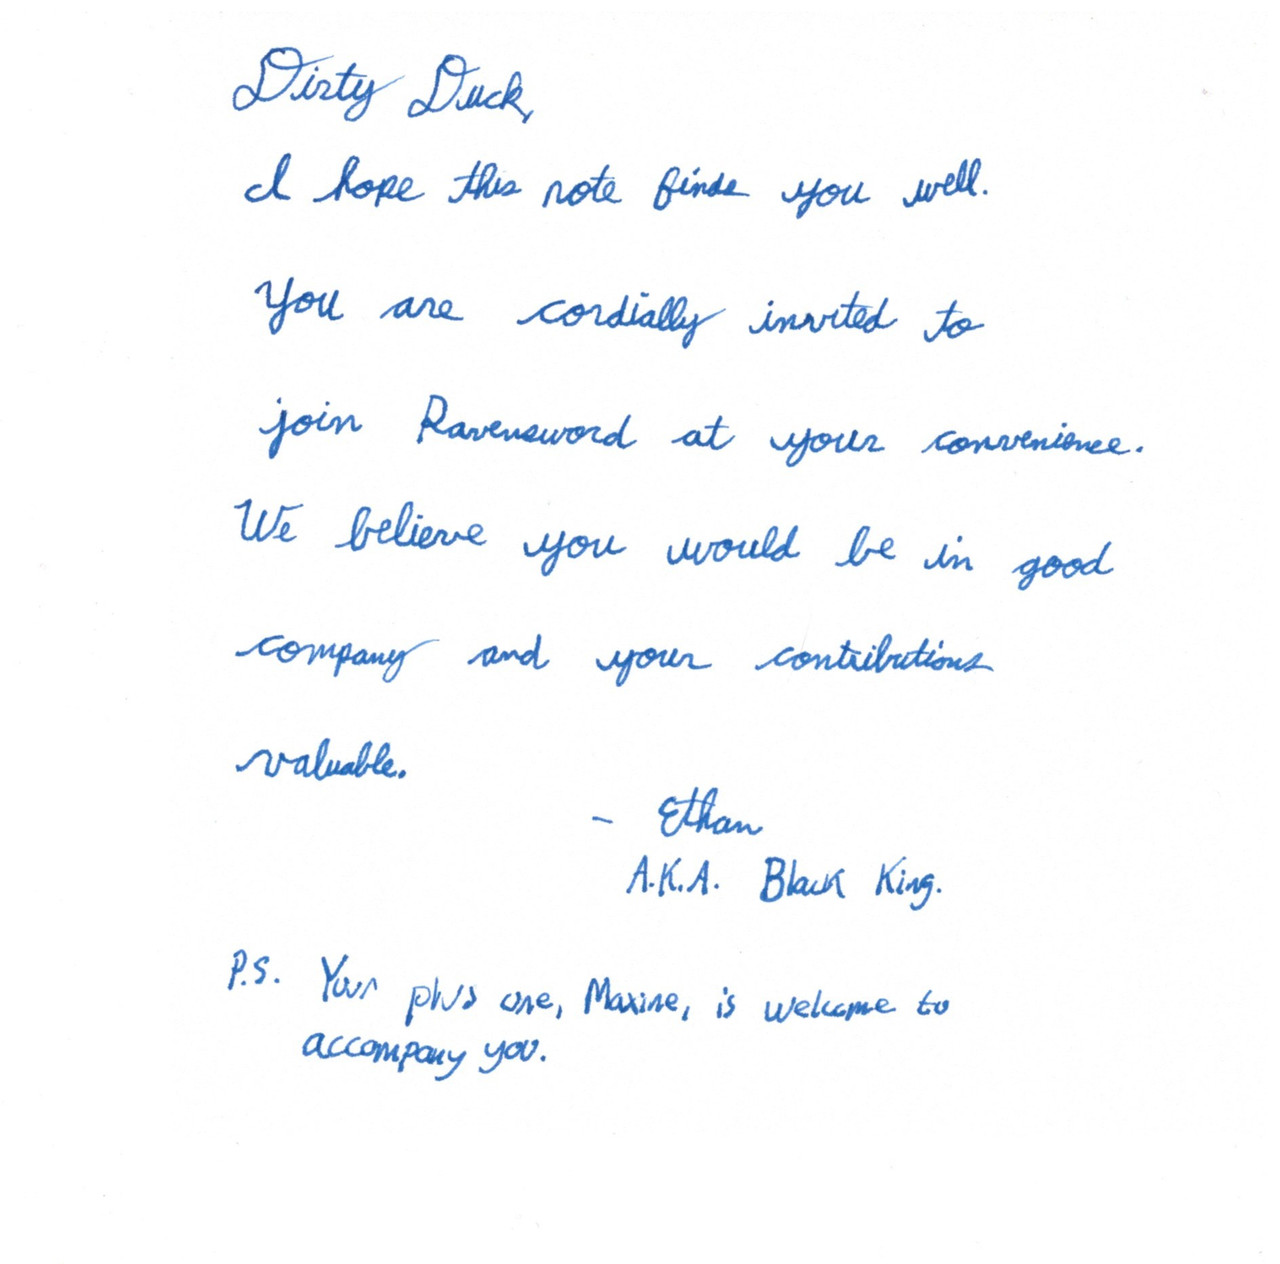 Dirty Duck,
I hope this note finds you well.
You are cordially invited to
join Ravensword at your convenience.
We believe you would be in good
company and your contributions
valuable.
- Ethan
A.K.A. Black King.
P.S. Your plus one, Maxine, is welcome to
accompany you.